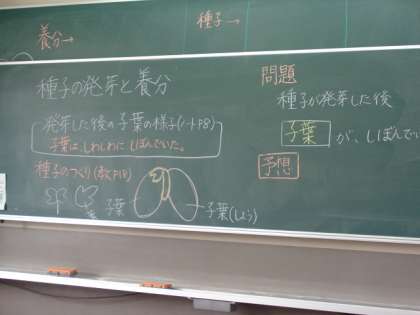 養分→
種子→
種子の発芽と養分
発芽した後の子葉の様子(ノートP8)
子葉はしわしわにしぼんでいた。
種子のつくり(教P18)
子葉
子葉(しよう)
問題
種子が発芽した後
子葉 が、しぼんで
予想